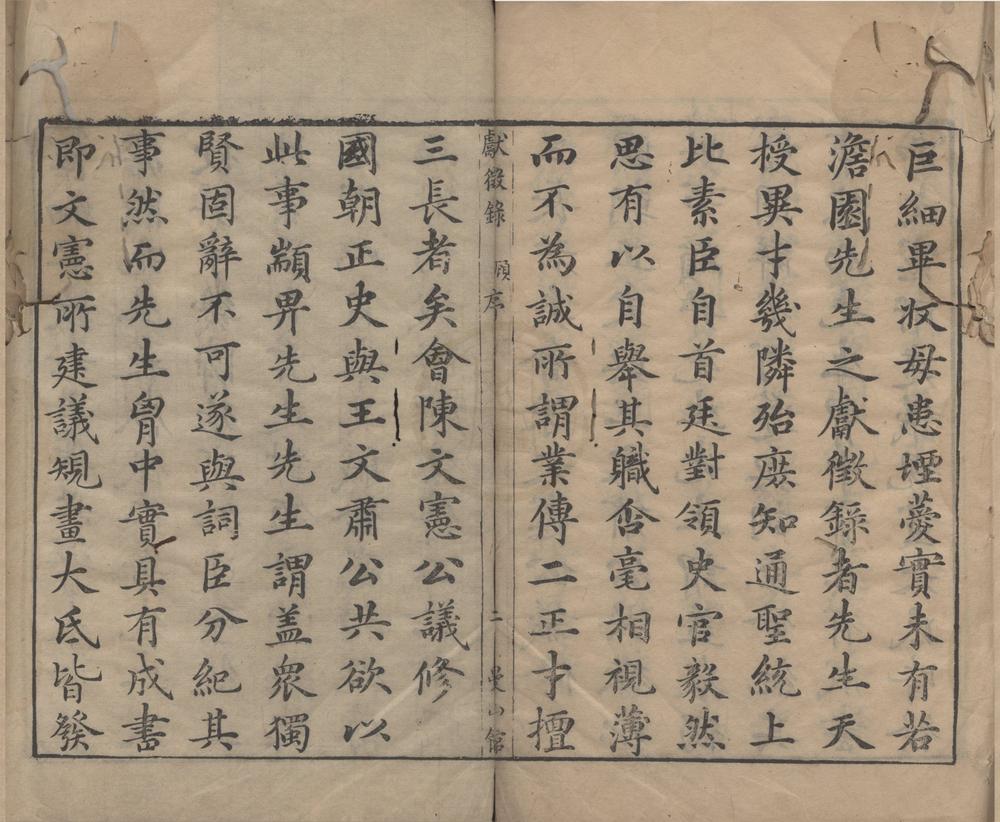 巨細畢收毋患堙蕪實未有若
澹園先生之獻徵錄者先生天
授異才幾隣殆庶知通聖統上
比素臣自首廷對領史官毅然
思有以自舉其職含毫相視薄
而不為誠所謂業傳二正才擅
獻徵錄 顧序 二 曼山館
三長者矣會陳文憲公議修
國朝正史與王文肅公共欲以
此事顓畀先生先生謂盖衆獨
賢固辭不可遂與詞臣分紀其
事然而先生胷中實具有成書
即文憲所建議規畫大氐皆發